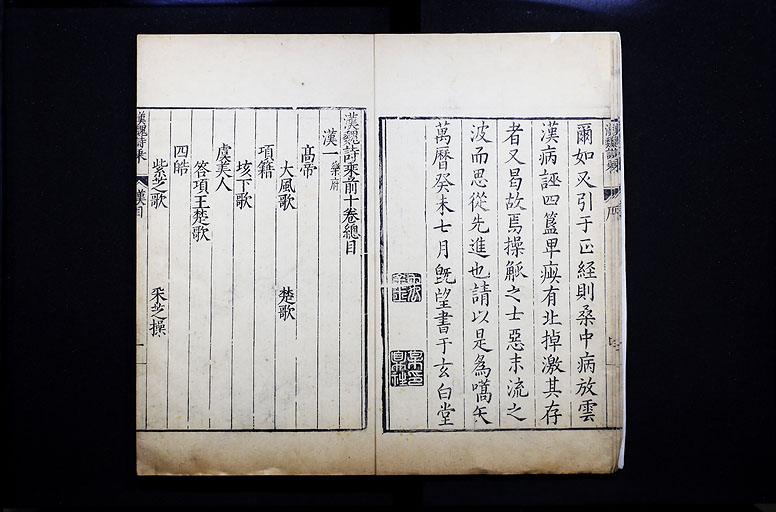 爾如又引于正經則桑中病放雲
漢病誣四簋畢瘼有北掉激其存
者又曷故焉操觚之士惡末流之
波而思從先進也請以是為嚆矢
萬曆癸未七月旣望書于玄白堂
漢魏詩乘前十卷總目
漢一 樂府
高帝
大風歌 楚歌
項籍
垓下歌
虞美人
答項王楚歌
四皓
紫芝歌 采芝操
漢魏詩乘 漢目 一